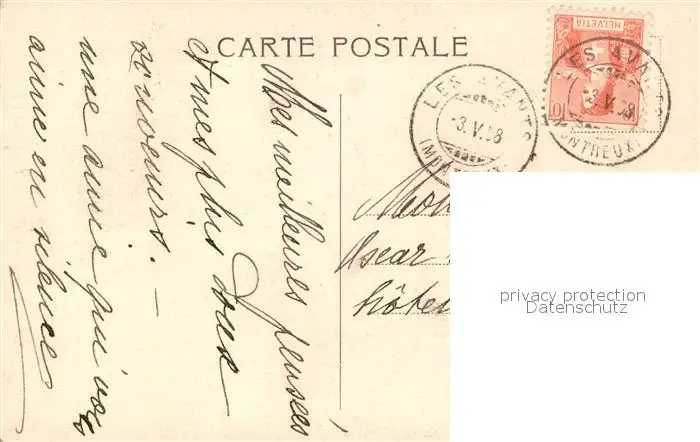 CARTE POSTALE
HELVETIA
10
LES AVANTS
-3.V.08
(MONTREUX)
LES AVANTS
-3.V.08
(MONTREUX)
Mes meilleures pensées
et mes plus doux
une amie qui vous
aime en silence
Oscar
privacy protection
Datenschutz